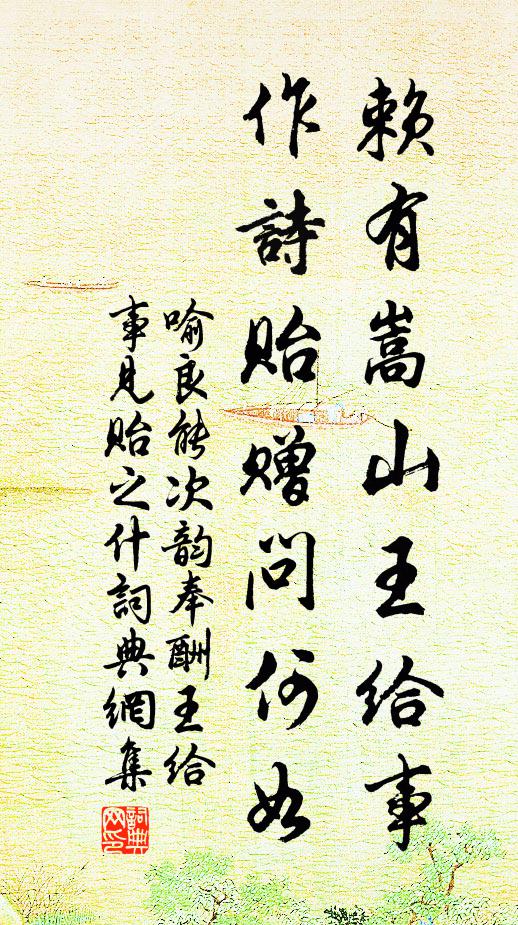 賴有嵩山王給事
作詩貽贈問何如
喻良能次韵奉酬王給
事見貽之什詞典網集
詞典
网印